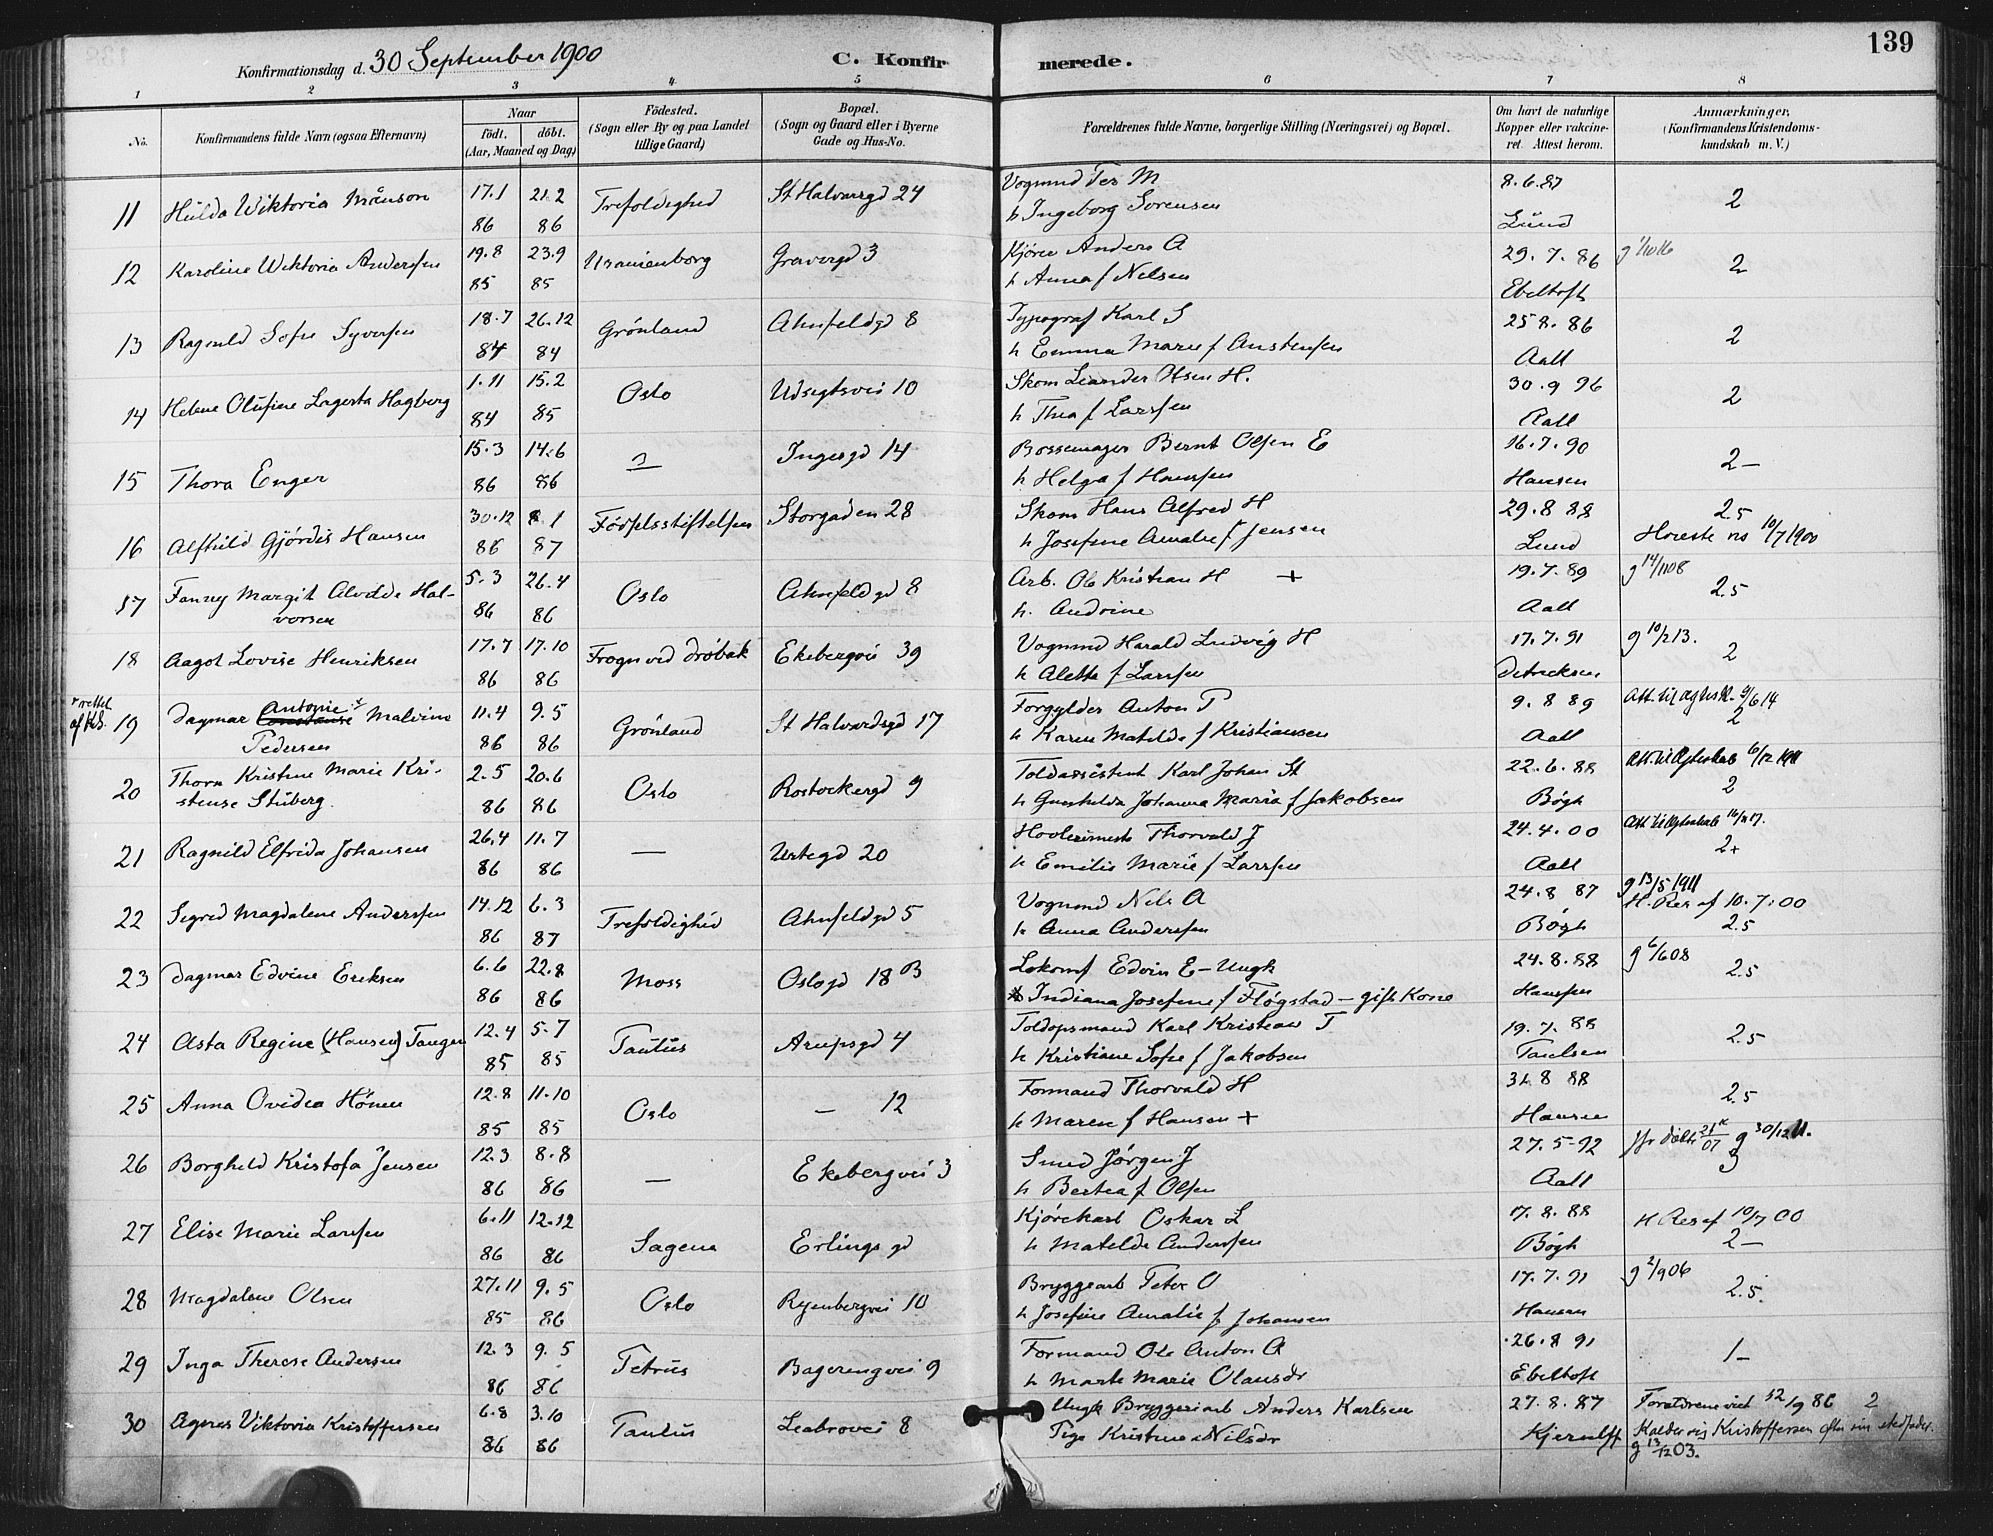 139
Konfirmationsdag d. 30 September 1900 C. Konfirmerede.
1 2 3 4 5 6 7 8
No. Konfirmandens fulde Navn (ogsaa Efternavn) Naar født. døbt. (Aar, Maaned og Dag) Fødested. (Sogn eller By og paa Landet tillige Gaard) Bopæl. (Sogn og Gaard eller i Byerne Gade og Hus-No. Forældrenes fulde Navne, borgerlige Stilling (Næringsvei) og Bopæl. Om havt de naturlige Kopper eller vakcineret. Attest herom. Anmærkninger. (Konfirmandens Kristendomskundskab m. V.)
11 Hulda Wiktoria Månson 17.1 86 21.2 86 Trefoldighed St Halvarsgd 24 Vognmd Per M
h Ingeborg Sorensen 8.6.87 Lund 2
12 Karoline Wiktoria Andersen 19.8 85 23.9 85 Uranienborg Gravergd 3 Kjører Anders A
h Anna f Nelsen 29.7.86 Ebeltoft 2
13 Ragnild Sofie Syversen 18.7 84 26.12 84 Grönland Ahnfeldgd 8 Typograf Karl S
h Emma Marie f Austensen 25 8.86 Aall 2
14 Helene Olufine Lagerta Hagberg 1.11 84 15.2 85 Oslo Udsigtsvei 10 Skom Leander Olsen H.
h Thea f Larssen 30.9 96 Aall 2
15 Thora Enger 15.3 86 14.6 86 Ingesgd 14 Bossemager Bernt Olsen E
h Helga f Hanssen 16.7.90 Hansen 2–
16 Alfhild Gjördis Hansen 30.12 86 8.1 87 Födselsstiftelsen Storgaden 28 Skom Hans Alfred H
h Josefine Amalie f Jensen 29.8 88 Lund 2.5
10/7 1900
17 Fanny Margit Alvilde Hal-
vorsen 5.3 86 26.4 86 Oslo Ahnfeldgd 8 Arb. Ole Kristian H +
h. Andrine 19.7.89 Aall g 14/1108 2.5
18 Aagot Lovise Henriksen 17.7 86 17.10 86 Frogn ved Dröbak Ekebergvei 39 Vognmd Harald Ludvig H
h Aletta f Larssen 17.7.91 Detricksen g 10/213. 2
rettet af KS. 19 Dagmar Antonie Malvine
Pedersen 11.4 86 9.5 86 Grönland St Halvardsgd 17 Forgylder Anton P
h Karen Matilde f Kristiansen 9.8 89 Aall Att. til ægtesk. 9/6 14
2
20 Thora Kristine Marie Kri-
stense Stüberg 2.5 86 20.6 86 Oslo Rostockergd 9 Toldassistent Karl Johan St
h Gunhilda Johanna Maria f Jakobsen 22.6.88 Bögh Att. til Ægteskab 6/12 1911
2
21 Ragnild Elfrida Johansen 26.4 86 11.7 86 — Urtegd 20 Thorvald J
h Emilie Marie f Larssen 24.4.00 Aall Att til Ægteskab
2+
22 Sigrid Magdalene Anderssen 14.12 86 6.3 87 Trefoldighed Ahnfeldgd 5 Vognmd Nils A
h Anna Anderssen 24.8 87 Bögh g 13/5 1911
K. Res af 10.7.00
2.5
23 Dagmar Edvine Eriksen 6.6 86 22.8 86 Moss Oslogd 18 B Lokomf Edvin E – Ungk
Indiana Josefine f Flögstad – gift Kone 24.8.88 Hanssen g 6/608 2.5
24 Asta Regine (Hansen) Tangen 12.4 85 5.7 85 Paulus Arupsgd 4 Toldopsmand Karl Kristian T
h Kristiane Sofie f Jakobsen 19.7.88 Paulsen 2.5
25 Anna Ovidea Hönen 12.8 85 11.10 85 Oslo – 12 Formand Thorvald H
h Maren f Hansen + 31.8 88 Hansen 2.5
26 Borghild Kristofa Jensen 12.3 86 8.8 86 — Ekebergvei 3 Smed Jörgen J
h Bertea f Olsen 27.5–92 Aall g 30/1211.
3
27 Elise Marie Larssen 6.11 86 12.12 86 Sagene Erlings gd Kjörekarl Oskar L
h Matelde Anderssen 17.8.88 Bögh K Res af 10/7 00
2–
28 Magdalene Olsen 27.11 85 9.5 86 Oslo Ryenbergvei 10 Bryggearb Peter O
h Josefine Amalie f Johansen 17.7.91 Hansen g 2/906 2.5.
29 Inga Therese Andersen 12.3 86 9.5 86 Petrus Bagerengvei 9 Formand Ole Anton A
h Marte Marie Olausdr 26.8 91 Ebeltoft 1–
30 Agnes Viktoria Kristoffersen 6.8 86 3.10 86 Paulus Leabrovei 8 Ungk Bryggeriarb Anders Karlsen
Pige Kristine Nilsdr 27.8.87 Kjerulff Forældrene viet 12/9 86 2
Kalder sig Kristoffersen efter sin stedfader.
g 13/1203.